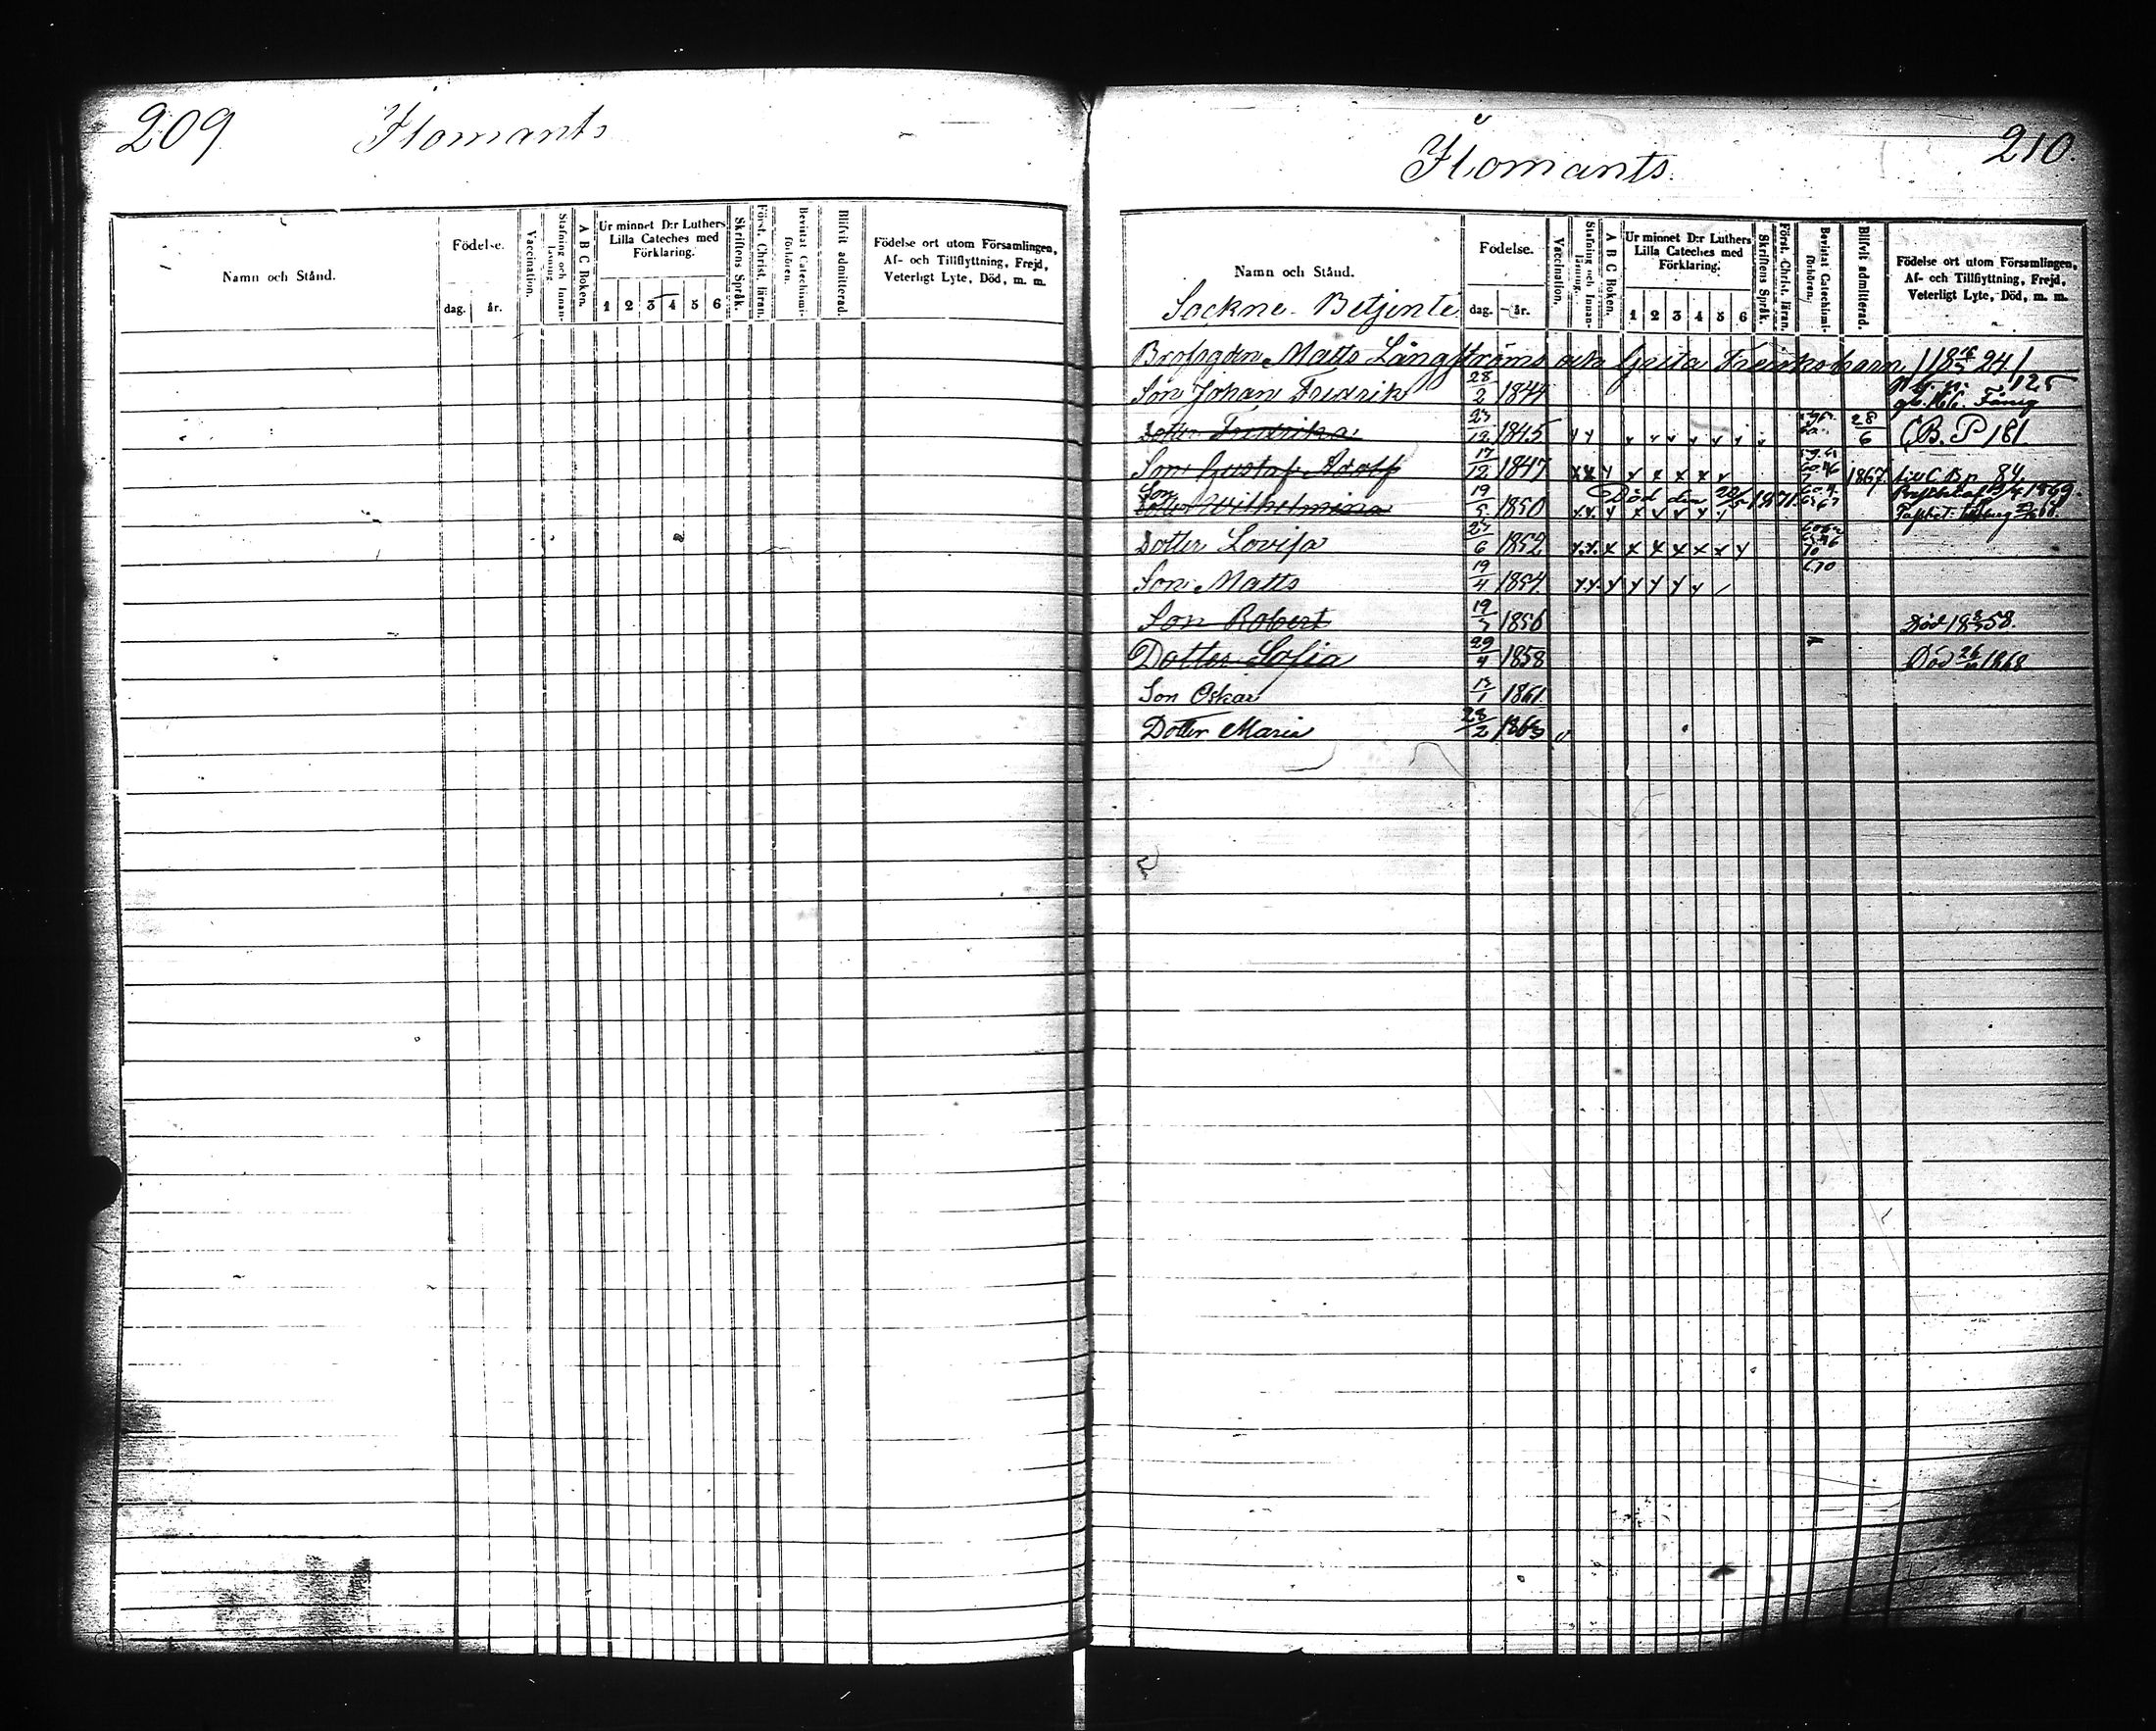 209
Ilomants
Namn och Stånd.
Födelse.
dag. år.
Vaccination.
Stafning och Innan-läsning.
A B C Boken.
Ur minnet D:r Luthers
Lilla Cateches med
Förklaring.
1 2 3 4 5 6
Skriftens Språk.
Först. Christ. läran.
Bevistat Catechismi-förhören.
Blifvit admitterad.
Födelse ort utom Församlingen,
Af- och Tillflyttning, Frejd,
Veterligt Lyte, Död, m. m.
210.
Ilomants.
Namn och Stånd.
Sockne-Betjente
Födelse.
dag. år.
Vaccination.
Stafning och Innan-läsning.
A B C Boken.
Ur minnet D:r Luthers
Lilla Cateches med
Förklaring.
1 2 3 4 5 6
Skriftens Språk.
Först. Christ. läran.
Bevistat Catechismi-förhören.
Blifvit admitterad.
Födelse ort utom Församlingen,
Af- och Tillflyttning, Frejd,
Veterligt Lyte, Död, m. m.
Matts Långströms och Greta barn
Son Johan Fredrik 28/2 1844 125
Dotter Fredrika 1845 28/6 C.B. P 181
Son Gustaf Adolf 17/12 1847 1867 84
Dotter Wilhelmina 19/5 1850 Död den 1871 1869.
Dotter Lovisa 1852
Son Matts 19/4 1854
Son Robert 1856 Död 58.
Dotter Sofia 29/4 1858 Död 1868
Son Oskar 1861.
Dotter Maria 28/2 1863